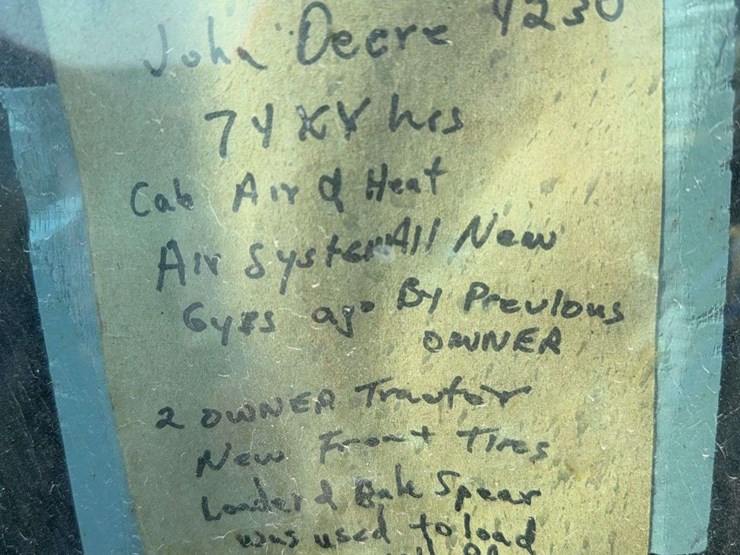 John Deere 4230
74XX hrs
Cab Air & Heat
Air System All New
6yrs ago By Previous
OWNER
2 OWNER Tractor
New Front Tires
Loader & Bale Spear
was used to load